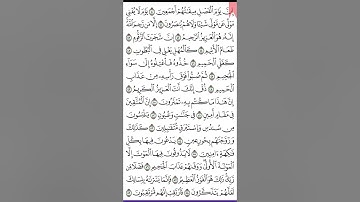 إِنَّ يَوْمَ ٱلْفَصْلِ مِيقَٰتُهُمْ أَجْمَعِينَ ٤٠ يَوْمَ لَا يُغْنِى
مَوْلًى عَن مَّوْلًى شَيْـًٔا وَلَا هُمْ يُنصَرُونَ ٤١ إِلَّا مَن رَّحِمَ ٱللَّهُ
إِنَّهُۥ هُوَ ٱلْعَزِيزُ ٱلرَّحِيمُ ٤٢ إِنَّ شَجَرَتَ ٱلزَّقُّومِ ٤٣
طَعَامُ ٱلْأَثِيمِ ٤٤ كَٱلْمُهْلِ يَغْلِى فِى ٱلْبُطُونِ ٤٥
كَغَلْىِ ٱلْحَمِيمِ ٤٦ خُذُوهُ فَٱعْتِلُوهُ إِلَىٰ سَوَآءِ
ٱلْجَحِيمِ ٤٧ ثُمَّ صُبُّوا۟ فَوْقَ رَأْسِهِۦ مِنْ عَذَابِ
ٱلْحَمِيمِ ٤٨ ذُقْ إِنَّكَ أَنتَ ٱلْعَزِيزُ ٱلْكَرِيمُ ٤٩
إِنَّ هَٰذَا مَا كُنتُم بِهِۦ تَمْتَرُونَ ٥٠ إِنَّ ٱلْمُتَّقِينَ
فِى مَقَامٍ أَمِينٍ ٥١ فِى جَنَّٰتٍ وَعُيُونٍ ٥٢ يَلْبَسُونَ
مِن سُندُسٍ وَإِسْتَبْرَقٍ مُّتَقَٰبِلِينَ ٥٣ كَذَٰلِكَ
وَزَوَّجْنَٰهُم بِحُورٍ عِينٍ ٥٤ يَدْعُونَ فِيهَا بِكُلِّ
فَٰكِهَةٍ ءَامِنِينَ ٥٥ لَا يَذُوقُونَ فِيهَا ٱلْمَوْتَ إِلَّا
ٱلْمَوْتَةَ ٱلْأُولَىٰ وَوَقَىٰهُمْ عَذَابَ ٱلْجَحِيمِ ٥٦ فَضْلًا مِّن
رَّبِّكَ ذَٰلِكَ هُوَ ٱلْفَوْزُ ٱلْعَظِيمُ ٥٧ فَإِنَّمَا يَسَّرْنَٰهُ بِلِسَانِكَ
لَعَلَّهُمْ يَتَذَكَّرُونَ ٥٨ فَٱرْتَقِبْ إِنَّهُم مُّرْتَقِبُونَ ٥٩